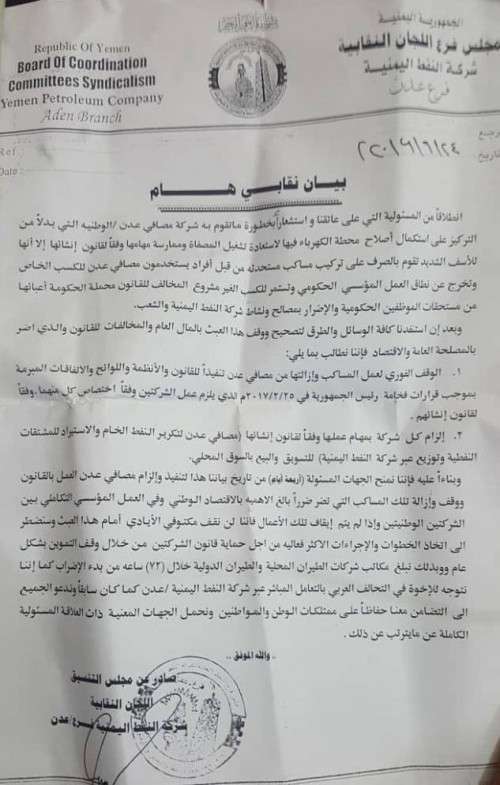 الجمهورية اليمنية
مجلس فرع اللجان النقابية
شركة النفط اليمنية
فرع عدن
Republic Of Yemen
Board Of Coordination
Committees Syndicalism
Yemen Petroleum Company
Aden Branch
Ref :
Date :
التاريخ
بيان نقابي هام
انطلاقاً من المسئولية التي على عاتقنا و استشعاراً بخطورة ماتقوم به شركة مصافي عدن /الوطنيه التي بدلاً من
التركيز على استكمال أصلاح محطة الكهرباء فيها لاستعادة تشغيل المصفاة وممارسة مهامها وفقاً لقانون إنشائها إلا أنها
للأسف الشديد تقوم بالصرف على تركيب مساكب مستحدثه من قبل أفراد يستخدمون مصافي عدن للكسب الخاص
وتخرج عن نطاق العمل المؤسسي الحكومي وتستمر للكسب الغير مشروع المخالف للقانون محملة الحكومة أعبائها
من مستحقات الموظفين الحكومية والإضرار بمصالح ونشاط شركة النفط اليمنية والشعب.
وبعد إن استنفذنا كافة الوسائل والطرق لتصحيح ووقف هذا العبث بالمال العام والمخالفات للقانون والذي اضر
بالمصلحة العامة والاقتصاد فإننا نطالب بما يلي:
١. الوقف الفوري لعمل المساكب وإزالتها من مصافي عدن تنفيذاً للقانون والأنظمة واللوائح والاتفاقات المبرمة
بموجب قرارات فخامة رئيس الجمهورية في ٢٠١٧/٢/٢٥م لذي يلزم عمل الشركتين وفقاً اختصاص كل منهما وفقاً
لقانون إنشائهم .
٢. إلزام كل شركة بمهام عملها وفقاً لقانون إنشائها (مصافي عدن لتكرير النفط الخام والاستيراد للمشتقات
النفطية وتوزيع عبر شركة النفط اليمنية) للتسويق والبيع بالسوق المحلي.
وبناءاً عليه فإننا نمنح الجهات المسئولة (أربعة أيام) من تاريخ بياننا هذا لتنفيذ وإلزام مصافي عدن العمل بالقانون
ووقف وإزالة تلك المساكب التي تضر ضرراً بالغ الاهميه بالاقتصاد الوطني وفي العمل المؤسسي التكاملي بين
الشركتين الوطنيتين وإذا لم يتم إيقاف تلك الأعمال فأننا لن نقف مكتوفي الأيادي أمام هذا العبث وسنضطر
الى اتخاذ الخطوات والإجراءات الاكثر فعاليه من اجل حماية قانون الشركتين من خلال وقف التموين بشكل
عام ووبذلك نبلغ مكاتب شركات الطيران المحلية والطيران الدولية خلال (٧٢) ساعه من بدء الإضراب كما إننا
نتوجه للإخوة في التحالف العربي بالتعامل المباشر عبر شركة النفط اليمنية /عدن كما كان سابقاً وندعو الجميع
الى التضامن معنا حفاظاً على ممتلكات الوطن والمواطنين ونحمل الجهات المعنية ذات العلاقة المسئولية
الكاملة عن مايترتب عن ذلك .
.. والله الموفق ..
صادر عن مجلس التنسيق
اللجان النقابية
شركة النفط اليمنية فرع عدن